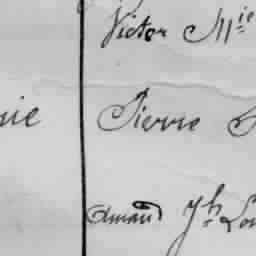 Victor Mie
nie Pierre
Amand Jh Lou